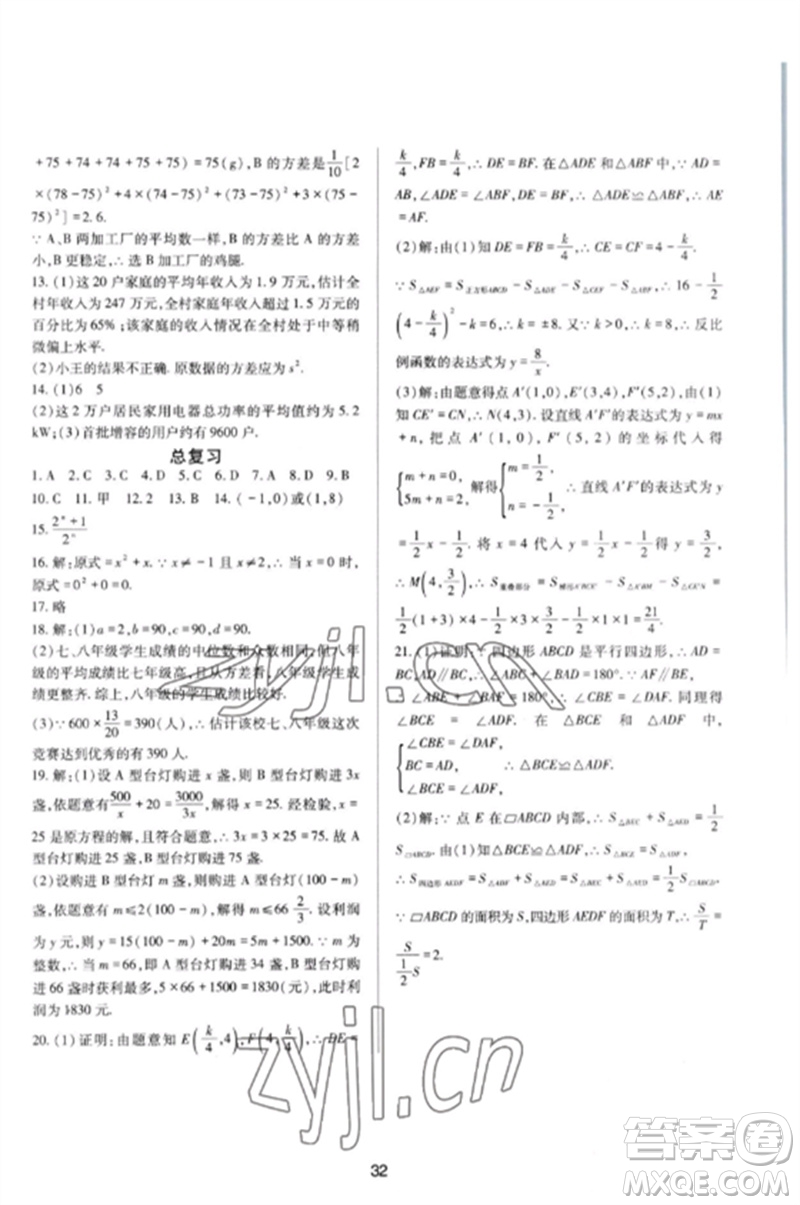 +75+74+74+75+75)=75(g),B 的方差是1/10[2
×(78-75)²+4×(74-75)²+(73-75)²+3×(75-
75)²]=2.6.
∵A、B 两加工厂的平均数一样,B 的方差比 A 的方差
小,B 更稳定,∴选 B 加工厂的鸡腿.
13.(1)这 20 户家庭的平均年收入为 1.9 万元,估计全
村年收入为 247 万元,全村年收入超过 1.5 万元的
百分比为 65%;该家庭的收入情况在全村处于中等稍
微偏上水平.
(2)小王的结果不正确.原数据的方差应为 s².
14.(1)6 5
(2)这 2 万户居民家用电器总功率的平均值约为 5.2
kW;(3)首批增容的用户约有 9600 户.
总复习
1.A 2.C 3.C 4.C 5.D 6.D 7.C 8.D 9.B
10.C 11.甲 12.2 13.B 14.(-1,0)或(1,8)
15.(2ⁿ+1)/2ⁿ
16.解:原式=x²+x.∵x≠-1 且 x≠2,∴当 x=0 时,
原式=0²+0=0.
17.略
18.解:(1)a=2,b=90,c=90,d=90.
(2)七、八年级学生成绩的中位数和众数相同,但八年
级的平均成绩比七年级高,且从方差看,八年级学生成
绩更整齐.综上,八年级的学生成绩比较好.
(3)∵600×13/20=390(人),∴估计该校七、八年级这次
竞赛达到优秀的有 390 人.
19.解:(1)设 A 型台灯购进 x 盏,B 型台灯购进 3x
盏,依题意有500/x+20=3000/3x,解得 x=25.经检验,x=
25 是原方程的解,且符合题意,∴3x=3×25=75.故 A
型台灯购进 25 盏,B 型台灯购进 75 盏.
(2)设购进 B 型台灯 m 盏,购进 A 型台灯(100-m)
盏,依题意有 m≤2(100-m),解得 m≤66 2/3.设利润
为 y 元,则 y=15(100-m)+20m=5m+1500.∵m 为
整数,∴m=66,即 A 型台灯购进 34 盏,B 型台灯购
进 66 盏时获利最多,5×66+1500=1830(元),此时利
润为 1830 元.
20.(1)证明:由题意知 E(k/4,4),F(4,k/4),∴DE=
k/4,FB=k/4,∴DE=FB.在△ADE 和△ABF 中,∵AD=
AB,∠ADE=∠ABF,DE=BF,∴△ADE≌△ABF,∴AE
=AF.
(2)解:由(1)知 DE=FB=k/4,∴CE=CF=4-k/4.
∵S△AEF=S正方形ABCD-S△ADE-S△ABF-S△CEF,∴16-1/2
(4-k/4)²-k=6,∴k=±8.又∵k>0,∴k=8,∴反比
例函数的表达式为 y=8/x.
(3)解:由题意得点 A′(1,0),E′(3,4),F′(5,2),由(1)
知 CE′=CN,∴N(4,3).设直线 A′F′的表达式为 y=mx
+n,把点 A′(1,0),F′(5,2)的坐标代入得
{m+n=0, 5m+n=2, 解得{m=1/2, n=-1/2, ∴直线 A′F′的表达式为 y
=1/2x-1/2.将 x=4 代入 y=1/2x-1/2得 y=3/2,
∴M(4,3/2),∴S重叠部分=S梯形A′BCE′-S△A′BM-S△CE′N=
1/2(1+3)×4-1/2×3×3/2-1/2×1×1=21/4.
21.(1)证明:∵四边形 ABCD 是平行四边形,∴AD=
BC,AD∥BC,∴∠ABC+∠BAD=180°.∵AF∥BE,
∴∠ABE+∠BAF=180°,∴∠CBE=∠DAF.同理得
∠BCE=∠ADF.在△BCE和△ADF中,
{∠CBE=∠DAF, BC=AD, ∠BCE=∠ADF, ∴△BCE≌△ADF.
(2)解:∵点 E 在▱ABCD 内部,∴S△BEC+S△AED=1/2
S▱ABCD.由(1)知△BCE≌△ADF,∴S△BCE=S△ADF,
∴S四边形AEDF=S△ADF+S△AED=S△BEC+S△AED=1/2S▱ABCD.
∵▱ABCD 的面积为 S,四边形 AEDF 的面积为 T,∴S/T=
S/(1/2 S)=2.
zyjl.cn
zyjl.cn
32
答案卷
MXQE.COM